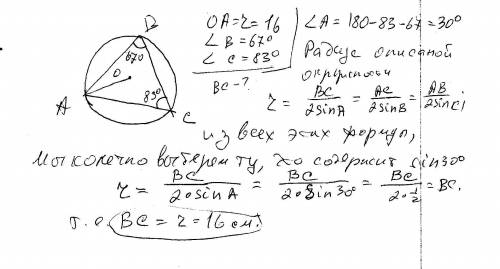 B
67°
O
A
83°
C
OA = r = 16
∠B = 67°
∠C = 83°
BC - ?
∠A = 180-83-67 = 30°
Радиус описаной
окружности
r = BC/2sinA = AC/2sinB = AB/2sinC
из всех этих формул,
мы конечно выберем ту, что содержит sin30°
r = BC/2·sinA = BC/2·sin30° = BC/2·1/2 = BC.
т.е. BC = r = 16 см.